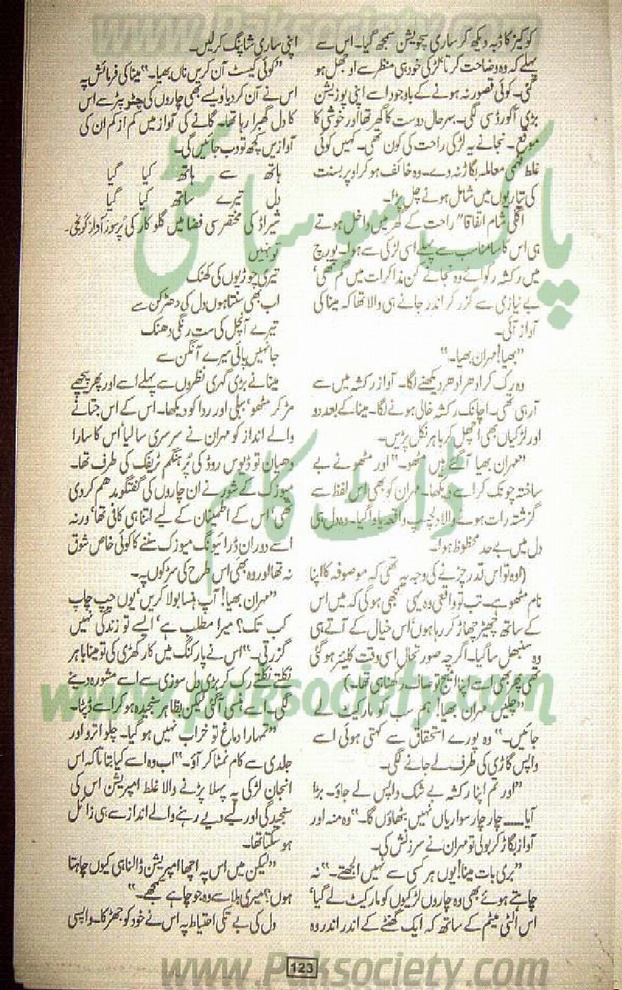 www.Paksociety.com
کوکیز کا ڈبہ دیکھ کر ساری سچویشن سمجھ گیا۔ اس سے
پہلے کہ وہ وضاحت کرتا لڑکی خود ہی منظر سے اوجھل ہو
گئی۔ کوئی قصور نہ ہونے کے باوجود اسے اپنی پوزیشن
بڑی آکورڈ سی لگی۔ بہرحال دوست کا گھر تھا اور خوشی کا
موقع۔ نجانے یہ لڑکی راحت کی کون تھی۔ کہیں کوئی
غلط فہمی معاملہ بگاڑ نہ دے۔ وہ خائف ہو کر اوپر بسنت
کی تیاریوں میں شامل ہونے چل پڑا۔
اگلی شام اتفاقاً" راحت کے گھر میں داخل ہوتے
ہی اس کا سامنا سب سے پہلے اسی لڑکی سے ہوا۔ پورچ
میں رکشہ رکوائے وہ نجانے کن مذاکرات میں گم تھی'
بے نیازی سے گزر کر اندر جانے ہی والا تھا کہ مینا کی
آواز آئی۔
"بھیا! مہران بھیا۔"
وہ رک کر ادھر ادھر دیکھنے لگا۔ آواز رکشہ میں سے
آ رہی تھی۔ اچانک رکشہ خالی ہونے لگا۔ مینا کے بعد دو
اور لڑکیاں بھی اچھل کر باہر نکل پڑیں۔
"مہران بھیا آ گئے ہیں مٹھو۔" اور مٹھو نے بے
ساختہ چونک کر اسے دیکھا۔ مہران کو بھی اس لفظ سے
گزشتہ رات ہونے والا دلچسپ واقعہ یاد آ گیا۔ وہ دل ہی
دل میں بے حد محظوظ ہوا۔
(اوہ تو اس قدر چڑنے کی وجہ یہ تھی کہ موصوفہ کا اپنا
نام مٹھو ہے۔ تب تو واقعی وہ یہی سمجھی ہو گی کہ میں اس
کے ساتھ چھیڑ چھاڑ کر رہا ہوں' اس خیال کے آتے ہی
وہ سنبھل سا گیا۔ اگرچہ صورتحال اسی وقت کلیئر ہو گئی
تھی پھر بھی اسے اپنا امیج تو صاف رکھنا ہی تھا۔)
"چلیں مہران بھیا! ہم سب کو مارکیٹ لے
جائیں۔" وہ پورے استحقاق سے کہتی ہوئی اسے
واپس گاڑی کی طرف لے جانے لگی۔
"اور تم اپنا رکشہ بے شک واپس لے جاؤ۔ بڑا
آیا۔۔۔ چار چار سواریاں نہیں بٹھاؤں گا۔" وہ منہ اور
آواز بگاڑ کر بولی تو مہران نے سرزنش کی۔
"بری بات مینا! یوں ہر کسی سے نہیں الجھتے۔" نہ
چاہتے ہوئے بھی وہ چاروں لڑکیوں کو مارکیٹ لے گیا'
اس الٹی میٹم کے ساتھ کہ ایک گھنٹے کے اندر اندر وہ
اپنی ساری شاپنگ کر لیں۔
"کوئی کیسٹ آن کریں ناں بھیا۔" مینا کی فرمائش پہ
اس نے آن کر دیا ویسے بھی چاروں کی چٹر پٹر سے اس
کا دل گھبرا رہا تھا۔ گانے کی آواز میں کم از کم ان کی
آوازیں کچھ تو دب جائیں گی۔
ہاتھ سے ہاتھ کیا گیا
دل تیرے ساتھ کیا گیا
شیراڈ کی مختصر سی فضا میں گلوکار کی پرسوز آواز گونجی۔
تو نہیں
تیری چوڑیوں کی کھنک
اب بھی سنتا ہوں دل کی دھڑکن سے
تیرے آنچل کی ست رنگی دھنک
جا نہیں پائی میرے آنگن سے
مینا نے بڑی گہری نظروں سے پہلے اسے اور پھر پیچھے
مڑ کر مٹھو' ببلی اور ردا کو دیکھا۔ اس کے اس جتانے
والے انداز کو مہران نے سرسری سا لیا' اس کا سارا
دھیان تو ڈیوس روڈ کی پرہنگم ٹریفک کی طرف تھا۔
میوزک کے شور نے ان چاروں کی گفتگو مدھم کر دی
تھی' اس کے اطمینان کے لیے اتنا ہی کافی تھا' ورنہ
اسے دوران ڈرائیونگ میوزک سننے کا کوئی خاص شوق
نہ تھا اور وہ بھی اس طرح کی سڑکوں پہ۔
"مہران بھیا! آپ ہنسا بولا کریں' یوں چپ چاپ
کب تک؟ میرا مطلب ہے' ایسے تو زندگی نہیں
گزرتی۔" اس نے پارکنگ میں کار کھڑی کی تو مینا باہر
نکلتے نکلتے رک کر بڑی دل سوزی سے اسے مشورہ دینے
لگی۔ اسے ہنسی آ گئی لیکن بظاہر سنجیدہ ہو کر اسے ڈپٹا۔
"تمہارا دماغ تو خراب نہیں ہو گیا۔ چلو اترو اور
جلدی سے کام نمٹا کر آؤ۔" اب وہ اسے کیا بتاتا کہ اس
انجان لڑکی پہ پہلا پڑنے والا غلط امپریشن اس کی
سنجیدگی اور لیے دیے رہنے والے انداز سے ہی زائل
ہو سکتا تھا۔
"لیکن میں اس پہ اچھا امپریشن ڈالنا ہی کیوں چاہتا
ہوں؟ میری بلا سے وہ جو چاہے سمجھے۔"
دل کی بے تکی احتیاط پہ اس نے خود کو جھڑکا۔ واپسی
پاک سوسائٹی
ڈاٹ کام
www.paksociety.com
123
www.Paksociety.com